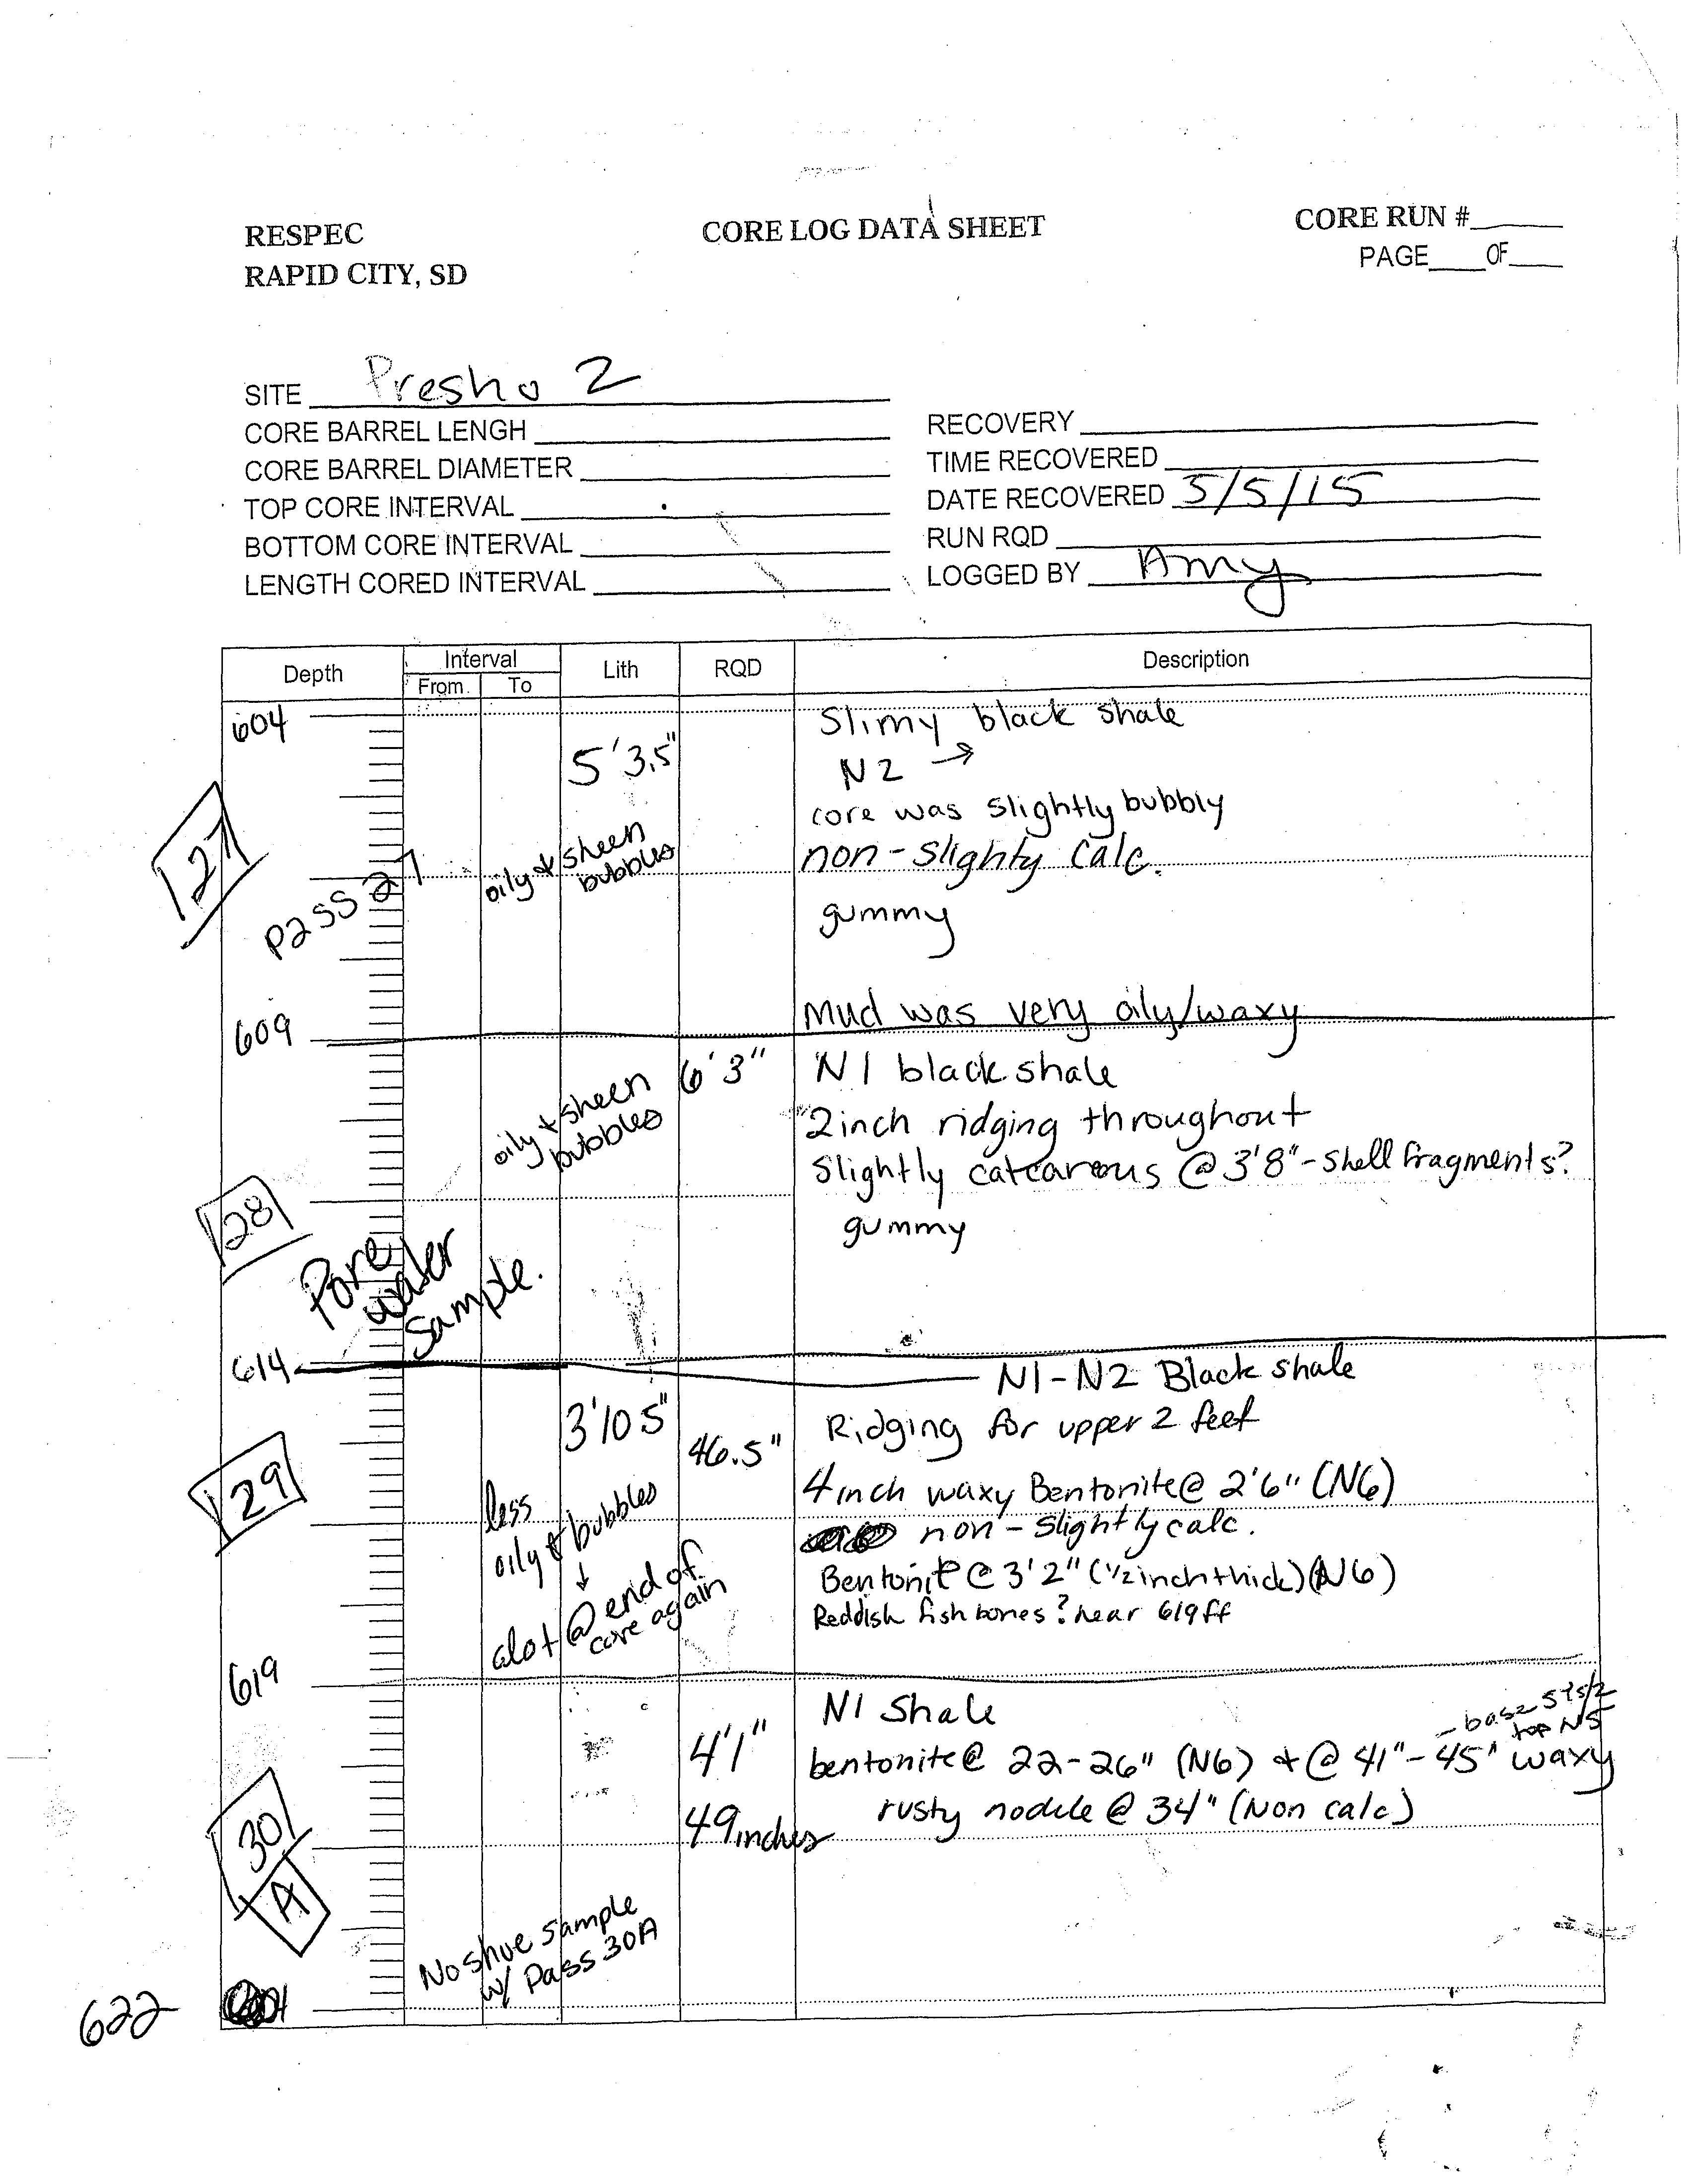 RESPEC
RAPID CITY, SD
CORE LOG DATA SHEET
CORE RUN #
PAGE OF
SITE Presho 2
CORE BARREL LENGH
CORE BARREL DIAMETER
TOP CORE INTERVAL
BOTTOM CORE INTERVAL
LENGTH CORED INTERVAL
RECOVERY
TIME RECOVERED
DATE RECOVERED 5/5/15
RUN RQD
LOGGED BY Amy
Depth Interval Lith RQD Description
From To
604
27
Pass 27
5'3.5"
oily & sheen
bubbles
Slimy black shale
N2 →
core was slightly bubbly
non-slighty calc.
gummy
Mud was very oily/waxy
609
28
Pore
water
Sample.
oily & sheen
bubbles
6'3"
N1 black shale
2inch ridging throughout
Slightly calcareous @ 3'8"-shell fragments?
gummy
614
29
3'10 5"
46.5"
less
oily & bubbles
↓
alot @ end of
core again
N1-N2 Black shale
Ridging for upper 2 feet
4inch waxy Bentonite @ 2'6" (N6)
non-slightly calc.
Bentonite @ 3'2" (1/2 inch thick) (N6)
Reddish fish bones? near 619ft
619
30
A
4'1"
49inches
No shoe sample
w/ Pass 30A
N1 Shale
- base 5Y5/2
top N5
bentonite @ 22-26" (N6) & @ 41"-45" waxy
rusty nodule @ 34" (Non calc)
622